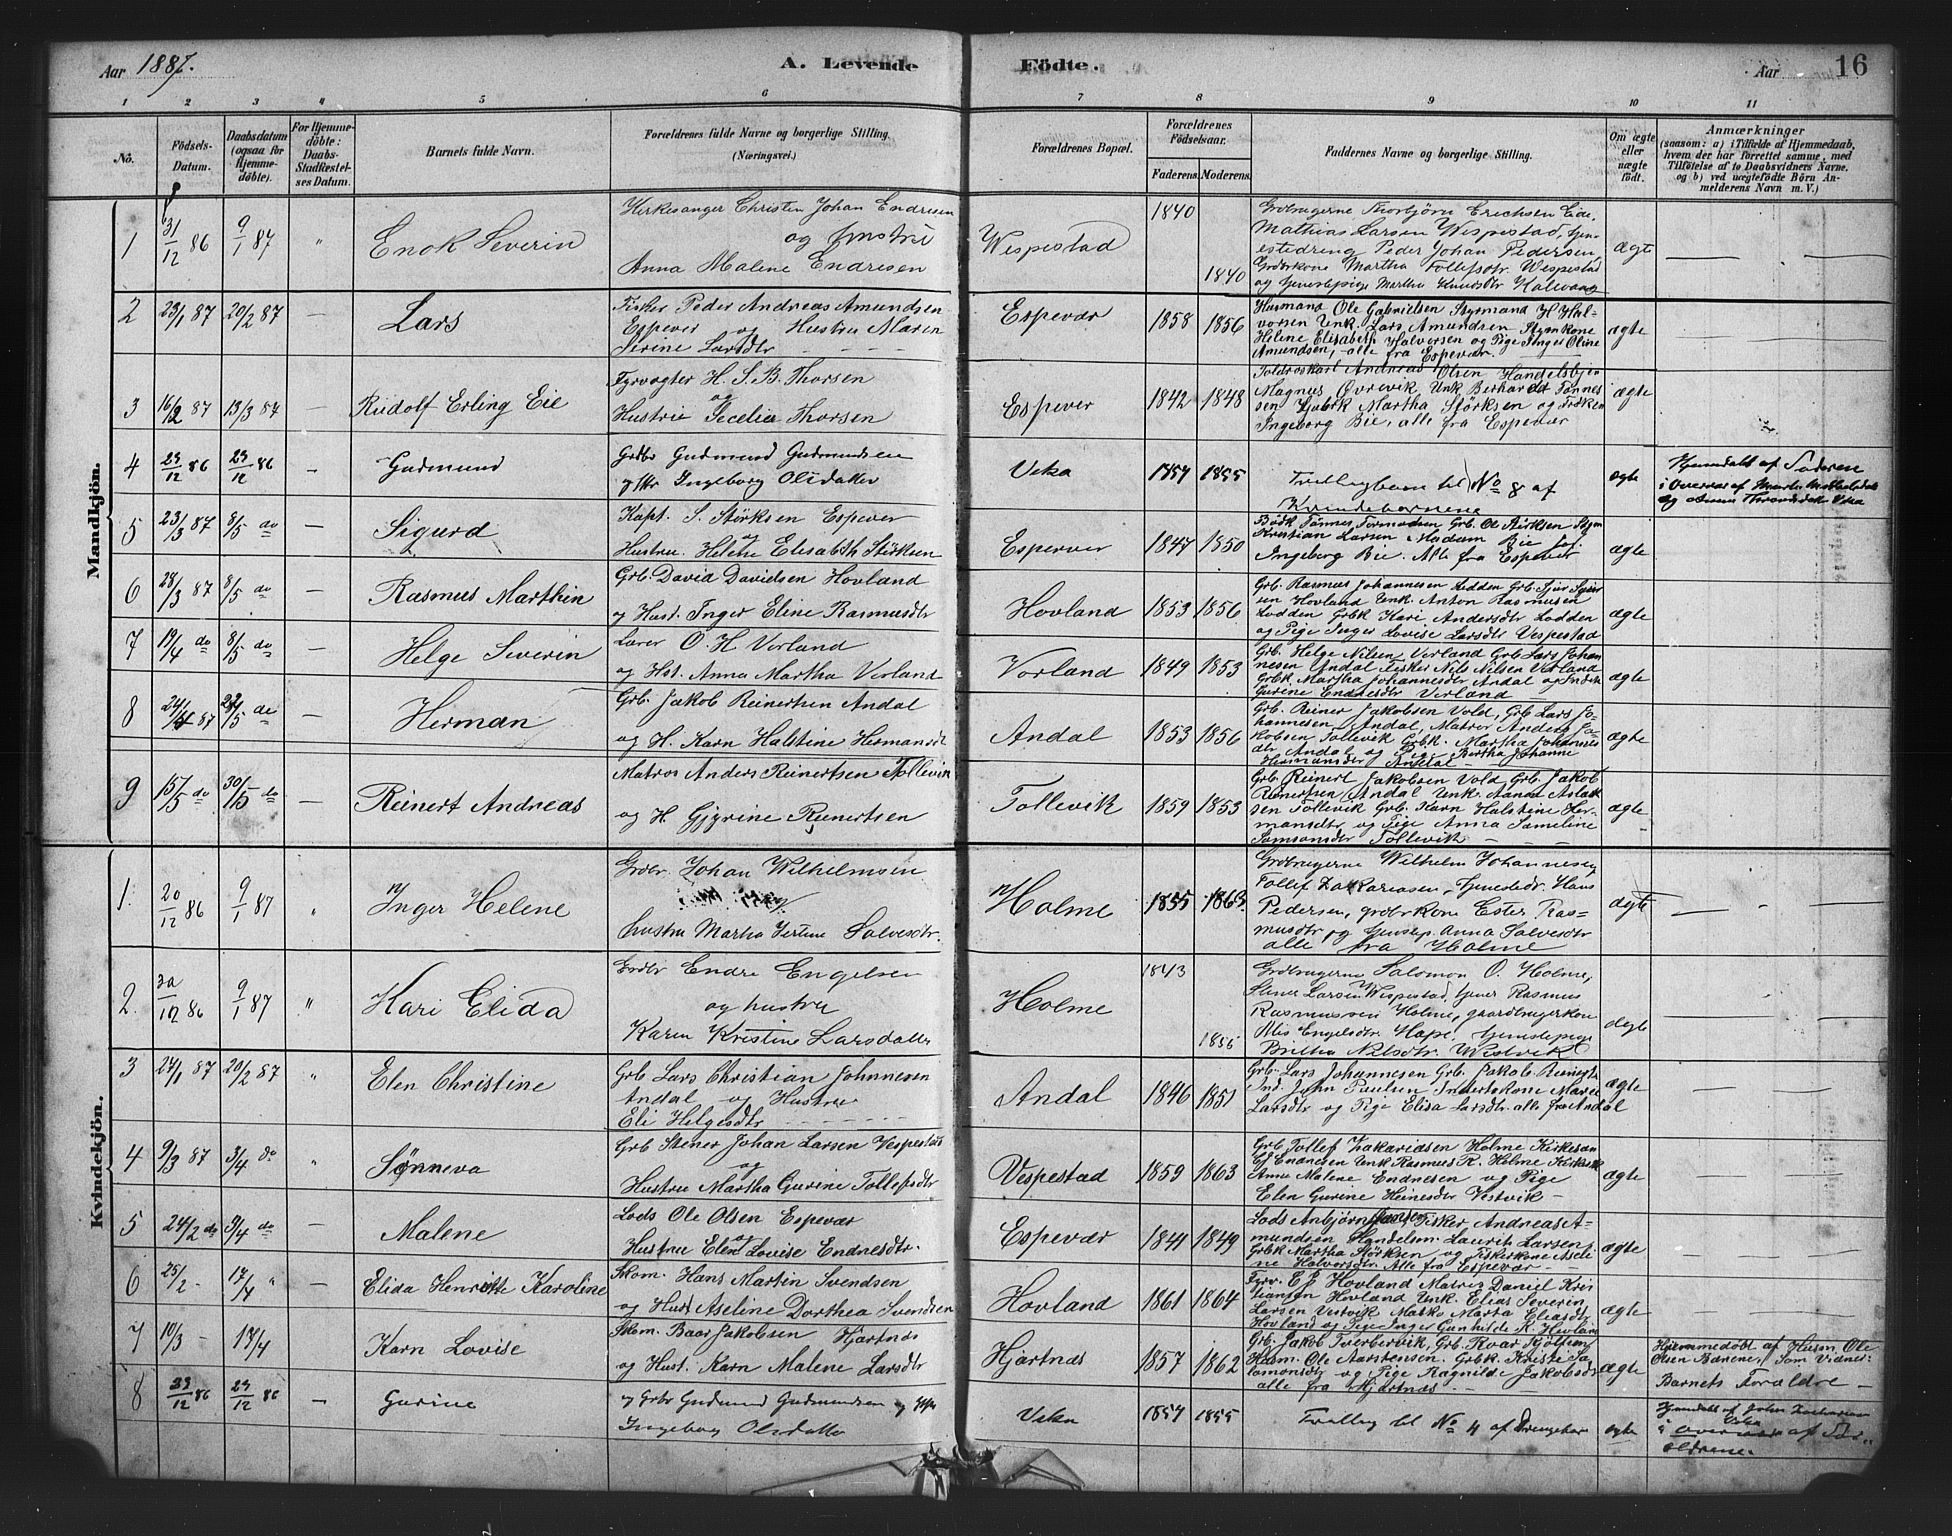 Aar 1887.
A. Levende
Födte.
Aar
16
1 2 3 4 5 6 7 8 9 10 11
No.
Födsels-
Datum.
Daabsdatum
(ogsaa for
Hjemme-
döbte).
For Hjemme-
döbte:
Daabs-
Stadfæstel-
ses Datum.
Barnets fulde Navn.
Forældrenes fulde Navne og borgerlige Stilling.
(Næringsvei.)
Forældrenes Bopæl.
Forældrenes
Födselsaar.
Faderens. Moderens.
Faddernes Navne og borgerlige Stilling.
Om ægte
eller
uægte
födt.
Anmærkninger
(saasom: a) i Tilfælde af Hjemmedaab,
hvem der har forrettet samme, med
Tilföielse af to Daabsvidners Navne,
og b) ved uægtefödte Börn An-
melderens Navn m. V.)
Mandkjön.
1 31/12 86 9/1 87 " Enok Severin
Kirkesanger Christen Johan Endresen
og Hustru
Anna Malene Endresen
Wespestad 1840 1840
Grdbrugerne Thorbjörn Erichsen Eide,
Mathias Larsen Wespestad, tjen-
estedreng Peder Johan Pedersen,
Grdbrkone Martha Tollefsdtr. Wespestad
og tjenestepige Martha Knudsdtr
ægte
2 23/1 87 20/2 87 — Lars
Fisker Peder Andreas Amundsen
Espever og Hustru Maren
Serine Larsdtr
Espevær 1858 1856
Husmand Ole Gabrielsen Styrmand H. Hal-
vorsen Unk. Lars Amundsen Styrmkone
Helene Elisabeth Halversen og Pige Inger Oline
Amundsen, alle fra Espevær.
ægte
3 16/2 87 13/3 87 — Rudolf Erling Eie
Fyrvogter H. S. B. Thorsen
og
Hustru Cecelia Thorsen
Espever 1842 1848
Toldroskarl Andreas Olsen Handelsbjen
Magnus Øvrevik Unk Berhard Tonnes
sen Grbk Martha Störksen og Fröken
Ingeborg Bie, alle fra Espevær
ægte
4 23/12 86 23/12 86 — Gudmund
Grdbr Gudmund Gudmundsen
og Hr Ingeborg Olsdatter
Veka 1857 1855
Tvillingbarn til No 8 af
Kvindebarnene
ægte
Hjemdøbt af Faderen
5 23/3 87 8/5 do Sigurd
Kapt. S. Störksen Espever
og
Hustru Helene Elisabth Störksen
Espevær 1847 1850
Kristian Larsen Madam Bie
Ingeborg Bie. Alle fra Espever
ægte
6 28/3 87 8/5 do — Rasmus Marthin
Grb. David Davidsen Hovland
og Hust. Inger Eline Rasmusdtr
Hovland 1853 1856
Grb. Rasmus Johannesen Lodden Grb. Sjur Sjur
sen Hovland Unk. Anton Rasmusen
Lodden Grbk Kari Andersdtr Lodden
og Pige Inger Lovise Larsdtr Vespestad
ægte
7 19/4 do 8/5 do — Helge Severin
Lærer O. H. Vorland
og Hst. Anna Martha Vorland
Vorland 1849 1853
Grb. Helge Nilsen Vorland Grb Lars Johan
nesen Andal Fisker Nils Nilsen Vorland
Grbk. Martha Johannesdtr Andal og
Gurine Endresdtr Vorland
ægte
8 24/4 87 22/5 do — Herman
Grb. Jakob Reinertsen Andal
og H. Karn Halstine Hermansdt
Andal 1853 1856
Grb. Reiner Jakobsen Vold, Grb Lars Jo-
hannesen Andal, Matros Anders Ja-
kobsen Tollevik Grbk. Martha Johannes
dtr Andal og Pige Bertha Johanne
Hermansdtr Andal
ægte
9 15/5 do 30/5 do — Reinert Andreas
Matros Anders Reinertsen Tollevik
og H. Gjyrine Reinertsen
Tollevik 1859 1853
Grb. Reinert Jakobsen Vold Grb. Jakob
Reinertsen Andal Unk. Aanen Aslak
sen Tollevik Grb. Karn Halstine Her-
mansdtr og Pige Anna Tomeline
Samsonsdtr Tollevik
ægte
Kvindekjön.
1. 20/12 86 9/1 87 " Inger Helene
Grdbr. Johan Wilhelmsen
hustru Martha Sertine Salvesdtr.
Holme 1855 1863.
Grdbrugerne Wilhelm Johannesen
Tollef Zakariasen, tjenestedr. Hans
Pedersen, grdbrkone Ester Ras-
musdtr, og tjenstep. Anna Salvesdtr
alle fra Holme
ægte
2. 30/12 86 9/1 87 " Kari Elida
Grdbr Endre Engelsen
og hustru
Karen Kristine Larsdatter
Holme 1843 1856
Grdbrugerne Salomon O. Holme,
Stener Larsen Wespestad, tjener Rasmus
Rasmussen Holme, gaardbrugerkone
Alis Engelsdtr. Hope, tjenestepige
Britha Nilsdtr. Westvik
ægte
3 24/1 87 20/2 87 " Elen Christine
Grb Lars Christian Johnnesen
Andal og Hustru
Eli Helgesdtr
Andal 1846 1851
Grb. Lars Johannesen Grb. Jakob Reinerts
Ind. John Paulsen Inderstkone Mari
Larsdtr og Pige Elisa Larsdtr. alle fra Andal
ægte
4 9/3 87 3/4 do " Sønneva
Grb Stener Johan Larsen Vespestad
og
Hustru Martha Gurine Tollefsdtr
Vespestad 1859 1863
Grb Tollef Zakariasen Holme Kirkesan
Endresen Unk Rasmus R. Holme
Anne Malene Endresen og Pige
Elen Gurine Heinesdtr Vestvik
ægte
5 24/2 do 3/4 do — Malene
Lods Ole Olsen Espevær
og
Hustru Elen Lovise Endresdtr.
Espevær 1841 1849
Lods Anbjørn Hansen Fisker Andreas A-
mundsen Handelsm. Laurits Larsen
Grbk Martha Störksen og Fiskerkone Aseli-
ne Halversdtr. Alle fra Espevær
ægte
6 25/2 - 17/4 " — Elida Henriette Karoline
Skom. Hans Martin Svendsen
og Hust Aseline Dorthea Svendsen
Hovland 1861 1864
Hovland Matros Daniel Kris
tiansen Hovland Unk. Elias Severin
Larsen Vestvik Marta Eliasdt
Hovland og Pige Inger Gunhilde K. Hovland
ægte
7 10/3 - 17/4 Karn Lovise
Skom. Baar Jakobsen Hjartnæs
og Hust. Karn Malene Larsdtr
Hjartnæs 1857 1862
Grb. Jakob Tverborvik, Grb. Roar Kjölsen
Husm. Ole Aartensen. Grbk. Kriste Sa
lomonsdtr og Pige Ragnilde Jakobsdtr
alle fra Hjartnæs
ægte
Hjemmedöbt af Husm Ole
Olsen Barene, Som Vidner:
Barnets Foraldre
8 23/12 86 23/12 86 — Gurine
og Grbr Gudmund Gudmundsen og Hstr
Ingeborg Olsdatter
Veka 1857 1855
Tvilling til No 4 af Drengebarn
ægte
Hjemdøbt af John Zachariasen
Veka
i overvær af For-
ældrene.